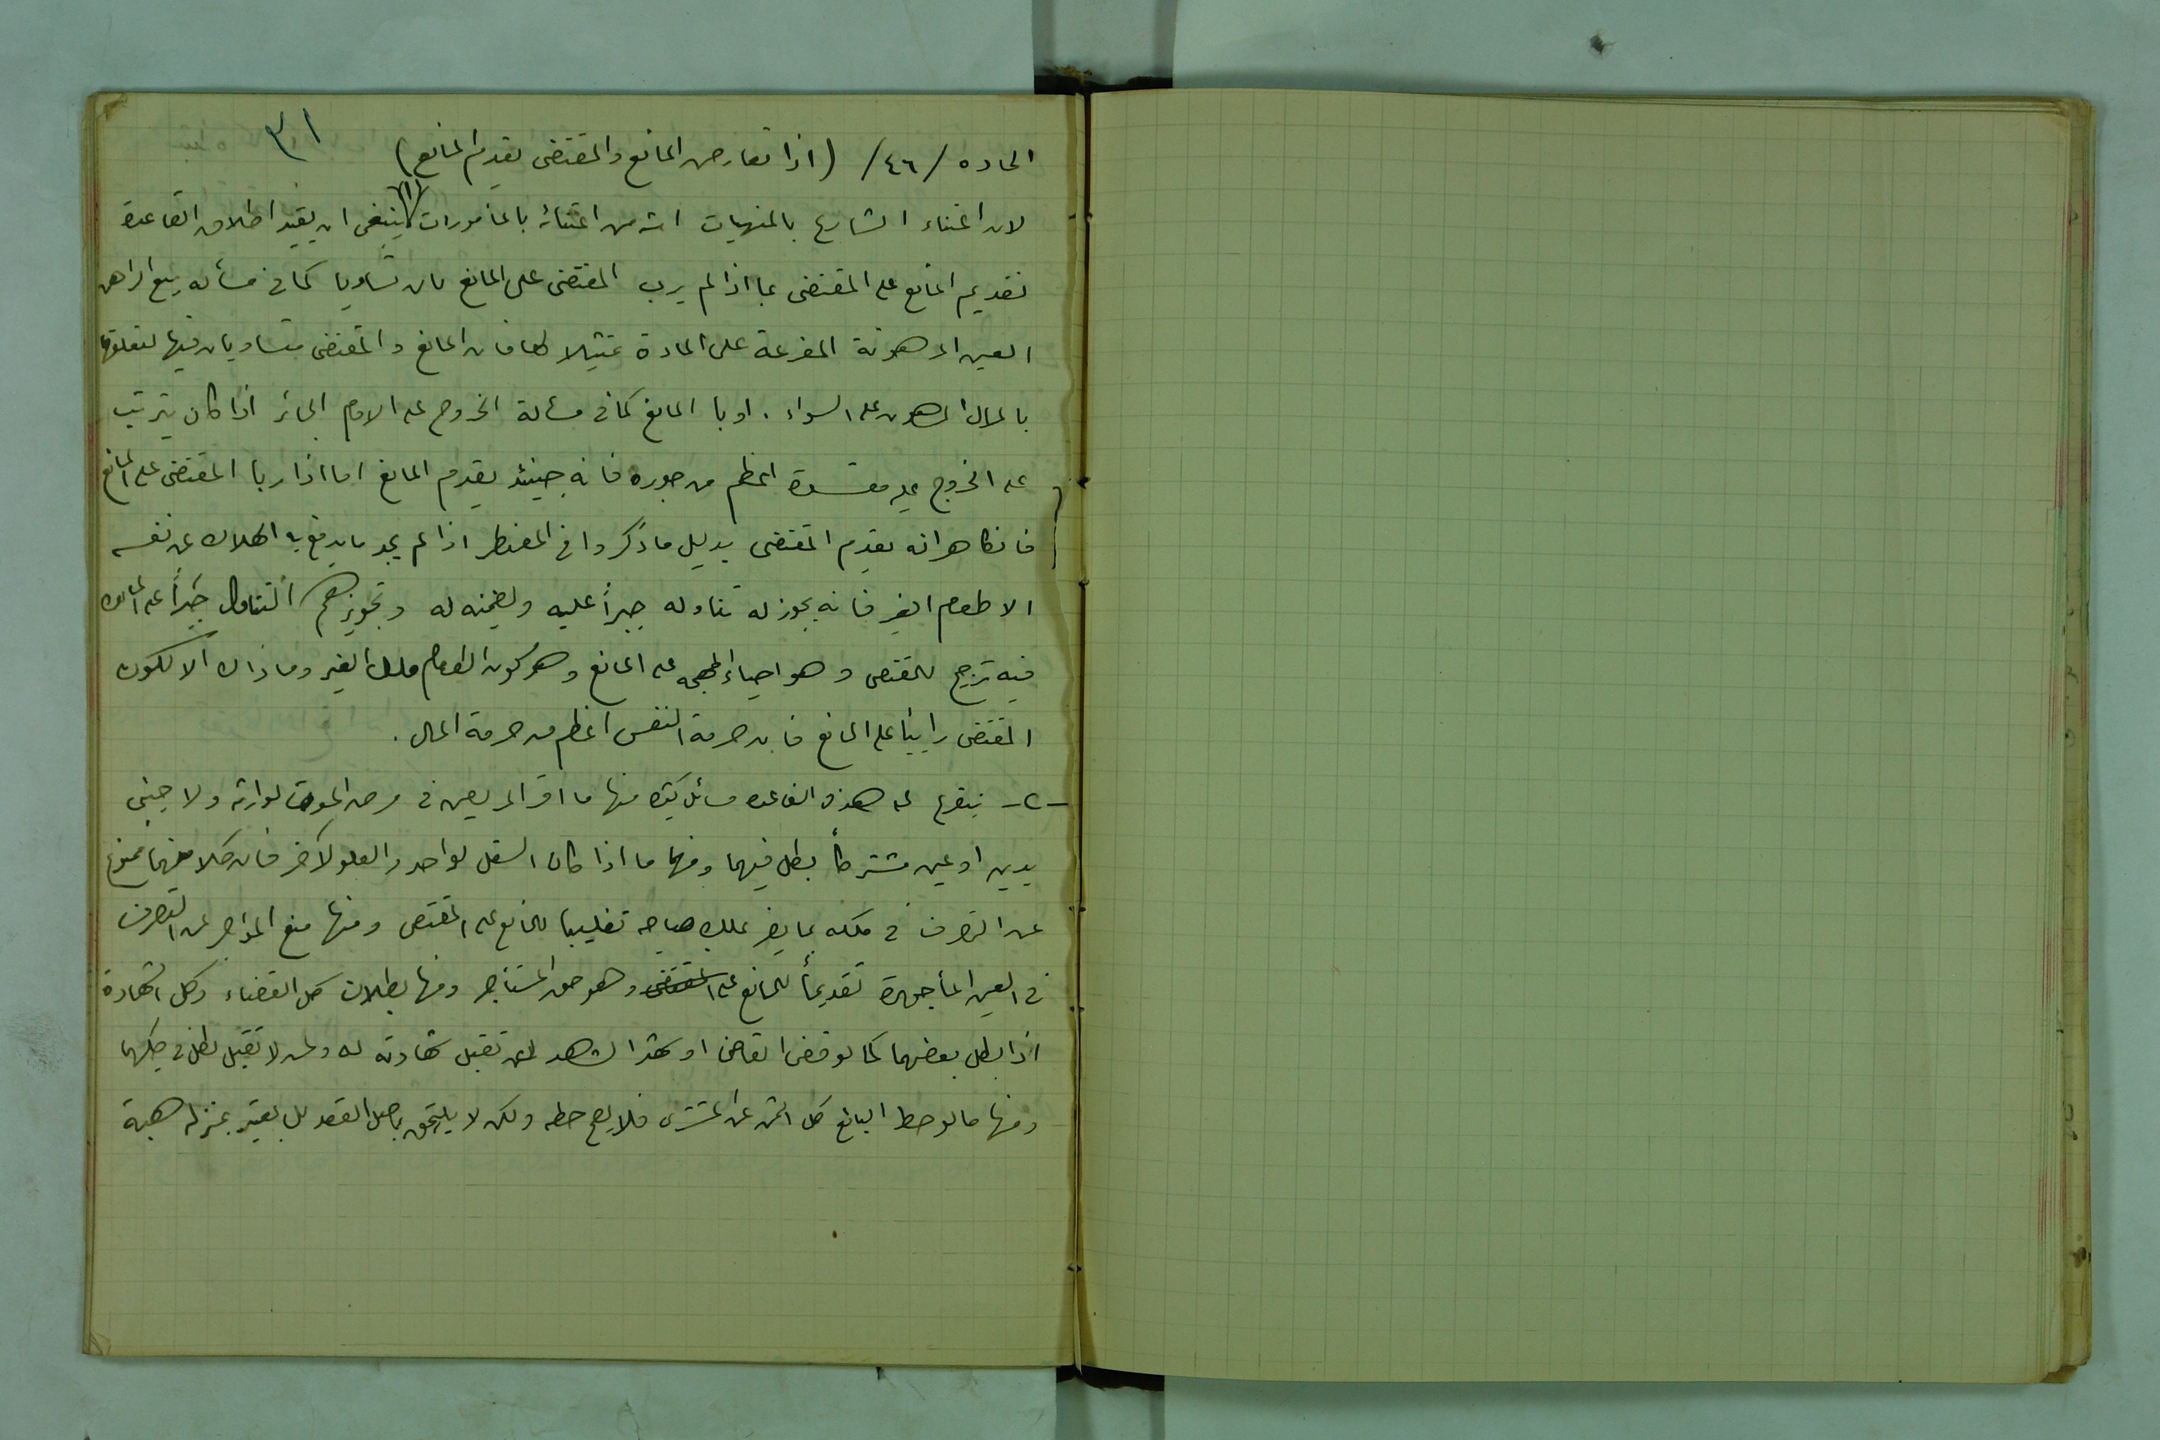 ٣١
المادة /٤٦/ (اذا تعارض المانع والمقتضى يقدم المانع)
لان اعتناء الشارع بالمنهيات اشد من اعتنائه بالمأمورات (١) ينبغي ان يقيد اطلاق القاعدة
تقديم المانع على المقتضى بما اذا لم يرب المقتضى على المانع بان تساويا كما في مسألة بيع الراهن
العين المرهونة المفرعة على المادة تمثيلا لها فان المانع والمقتضى متساويان فيها لتعلقهما
بالمال المرهون على السواء . او با المانع كما في مسألة الخروج على الامام الجائر اذا كان يترتب
على الخروج عليه مفسدة اعظم من جوره فانه حينئذ يقدم المانع اما اذا ربا المقتضى على المانع
فالظاهر انه يقدم المقتضى بدليل ما ذكروا في المضطر اذا لم يجد ما يدفع به الهلاك عن نفسه
الا طعام الغير فانه يجوز له تناوله جبراً عليه ويضمنه له وتجويزهم التناول جبراً على المالك
فيه ترجيح للمقتضى وهو احياء المهجة على المانع وهو كون الطعام ملك الغير وما ذاك الا لكون
المقتضى رابيا على المانع فان حرمة النفس اعظم من حرمة المال .
-٢- يتفرع على هذه القاعدة مسائل كثيرة منها ما اقر المريض في مرض الموت لوارثه ولاجنبي
بدين او عين مشتركاً بطل فيهما ومنها ما اذا كان السفل لواحد والعلو لآخر فان كلا منهما ممنوع
عن التصرف في ملكه بما يضر بملك صاحبه تغليبا للمانع على المقتضى ومنها منع المؤاجر عن التصرف
في العين المأجورة تقديماً للمانع على المقتضى وهو حق المستأجر ومنها بطلان كل القضاء وكل الشهادة
اذا بطل بعضهما كما لو قضى القاضي او شهد الشاهد لمن تقبل شهادته له ولمن لا تقبل بطل في حكهما
ومنها ما لو حط البائع كل الثمن عن المشتري فلا يصح حطه ولكن لا يلتحق باصل العقد بل يعتبر بمنزلة هبة